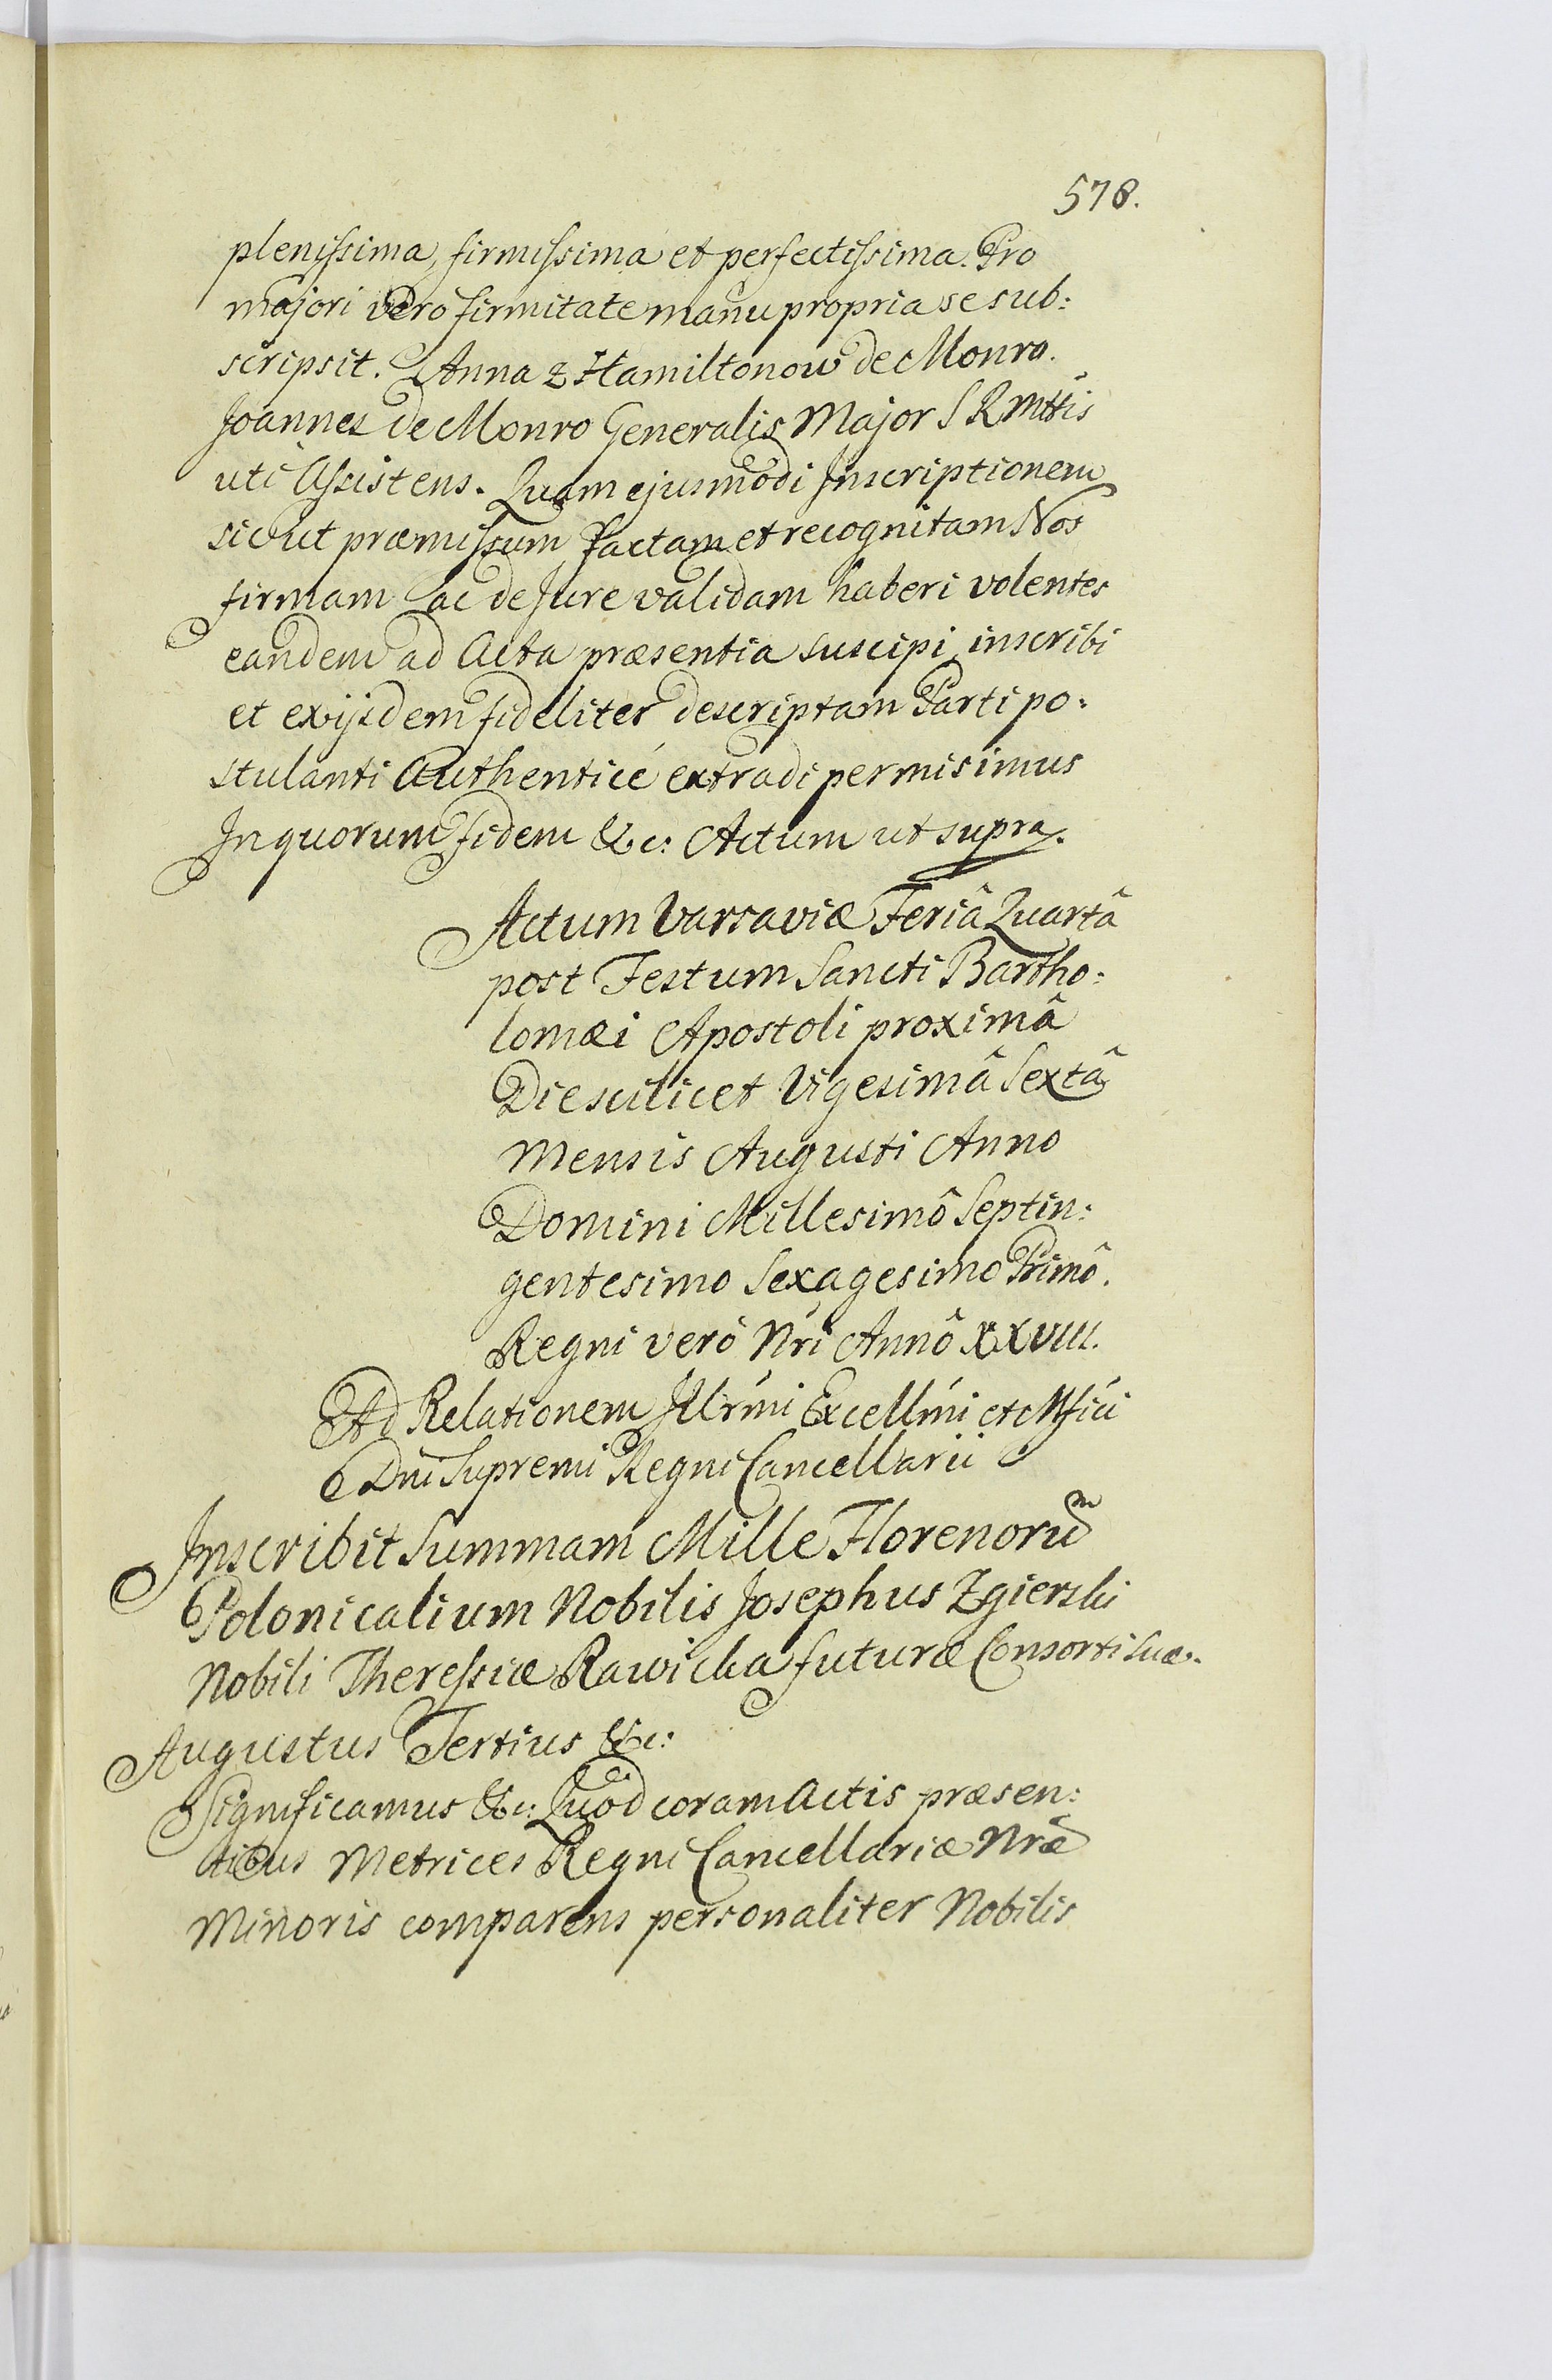 578.
plenissima, firmissima et perfectissima. Pro
majori vero firmitate manu propria se sub:
scripsit. Anna z Hamiltonow de Monro.
Joannes de Monro Generalis Major S R Mttis
uti Assistens. Quam ejusmodi Inscriptionem
sic ut præmissum factam et recognitam Nos
firmam ac de Jure validam haberi volentes
eandem ad Acta præsentia suscipi, inscribi
et ex ijsdem fideliter descriptam Parti po:
stulanti Authenticé extradi permisimus
In quorum fidem &c: Actum ut supra.
Actum Varsaviæ Feriâ Quartâ
post Festum Sancti Bartho:
lomæi Apostoli proximâ
Die scilicet Vigesimâ Sextâ
Mensis Augusti Anno
Domini Millesimô Septin:
gentesimo Sexagesimo Primô.
Regni verò Nri Annô XXVIII.
Ad Relationem Illrmi Excellmi et Mfici
Dni Supremi Regni Cancellarii
Inscribit Summam Mille Florenorum
Polonicalium Nobilis Josephus Zgierski
Nobili Theressiæ Rawicka futuræ Consorti suæ.
Augustus Tertius &c:
Significamus &c: Quod coram Actis præsen:
tibus Metrices Regni Cancellariæ Nræ
Minoris comparens personaliter Nobilis